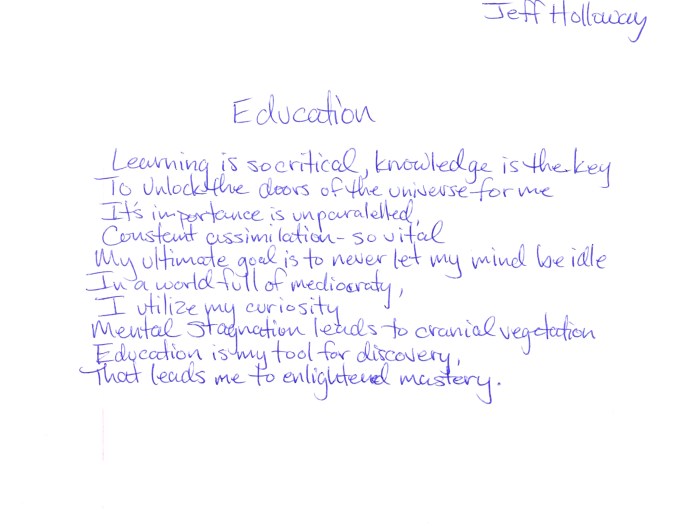 Jeff Holloway
Education
Learning is so critical, knowledge is the key
To unlock the doors of the universe for me
It's importance is unparalelled,
Constant assimilation - so vital
My ultimate goal is to never let my mind be idle
In a world full of mediocraty,
I utilize my curiosity
Mental stagnation leads to cranial vegetation
Education is my tool for discovery,
That leads me to enlightened mastery.